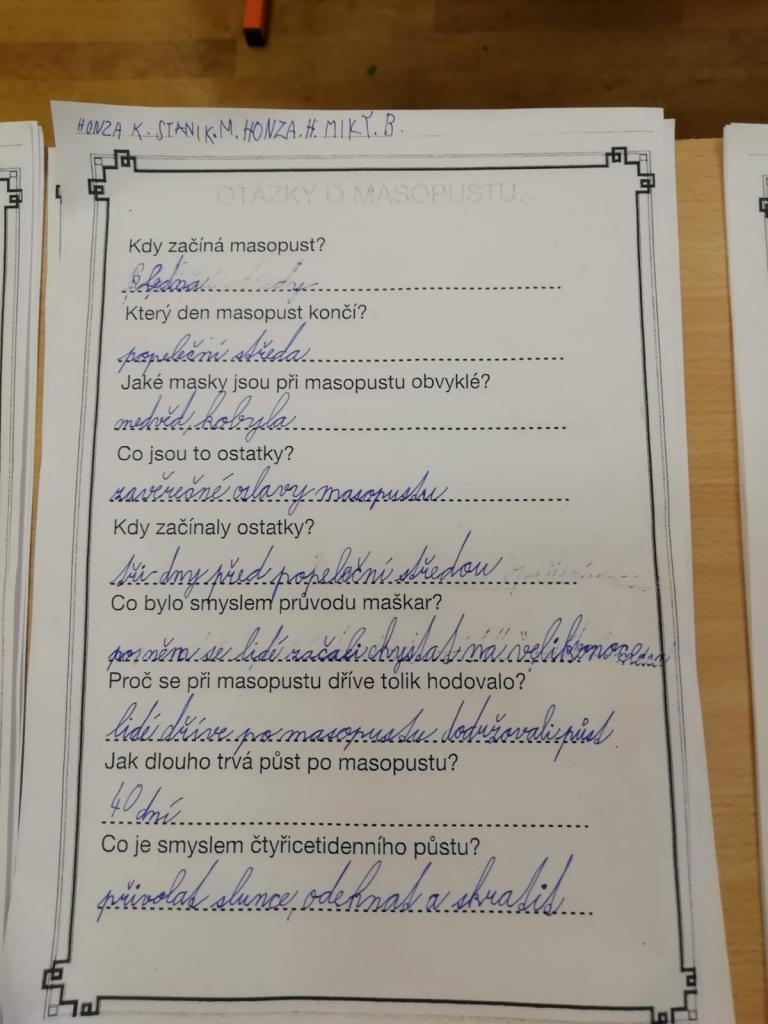 HONZA K. STANIK. M. HONZA. H. MIKY. B.
OTÁZKY O MASOPUSTU...
Kdy začíná masopust?
ledna
Který den masopust končí?
popeleční středa
Jaké masky jsou při masopustu obvyklé?
medvěd, kobyla
Co jsou to ostatky?
zavěrečné oslavy masopustu
Kdy začínaly ostatky?
tři dny před popeleční středou
Co bylo smyslem průvodu maškar?
se lidé začali chystat na velikonoce
Proč se při masopustu dříve tolik hodovalo?
lidé dříve po masopustu dodržovali půst
Jak dlouho trvá půst po masopustu?
40 dní
Co je smyslem čtyřicetidenního půstu?
přivolat slunce, odehnat a skratit